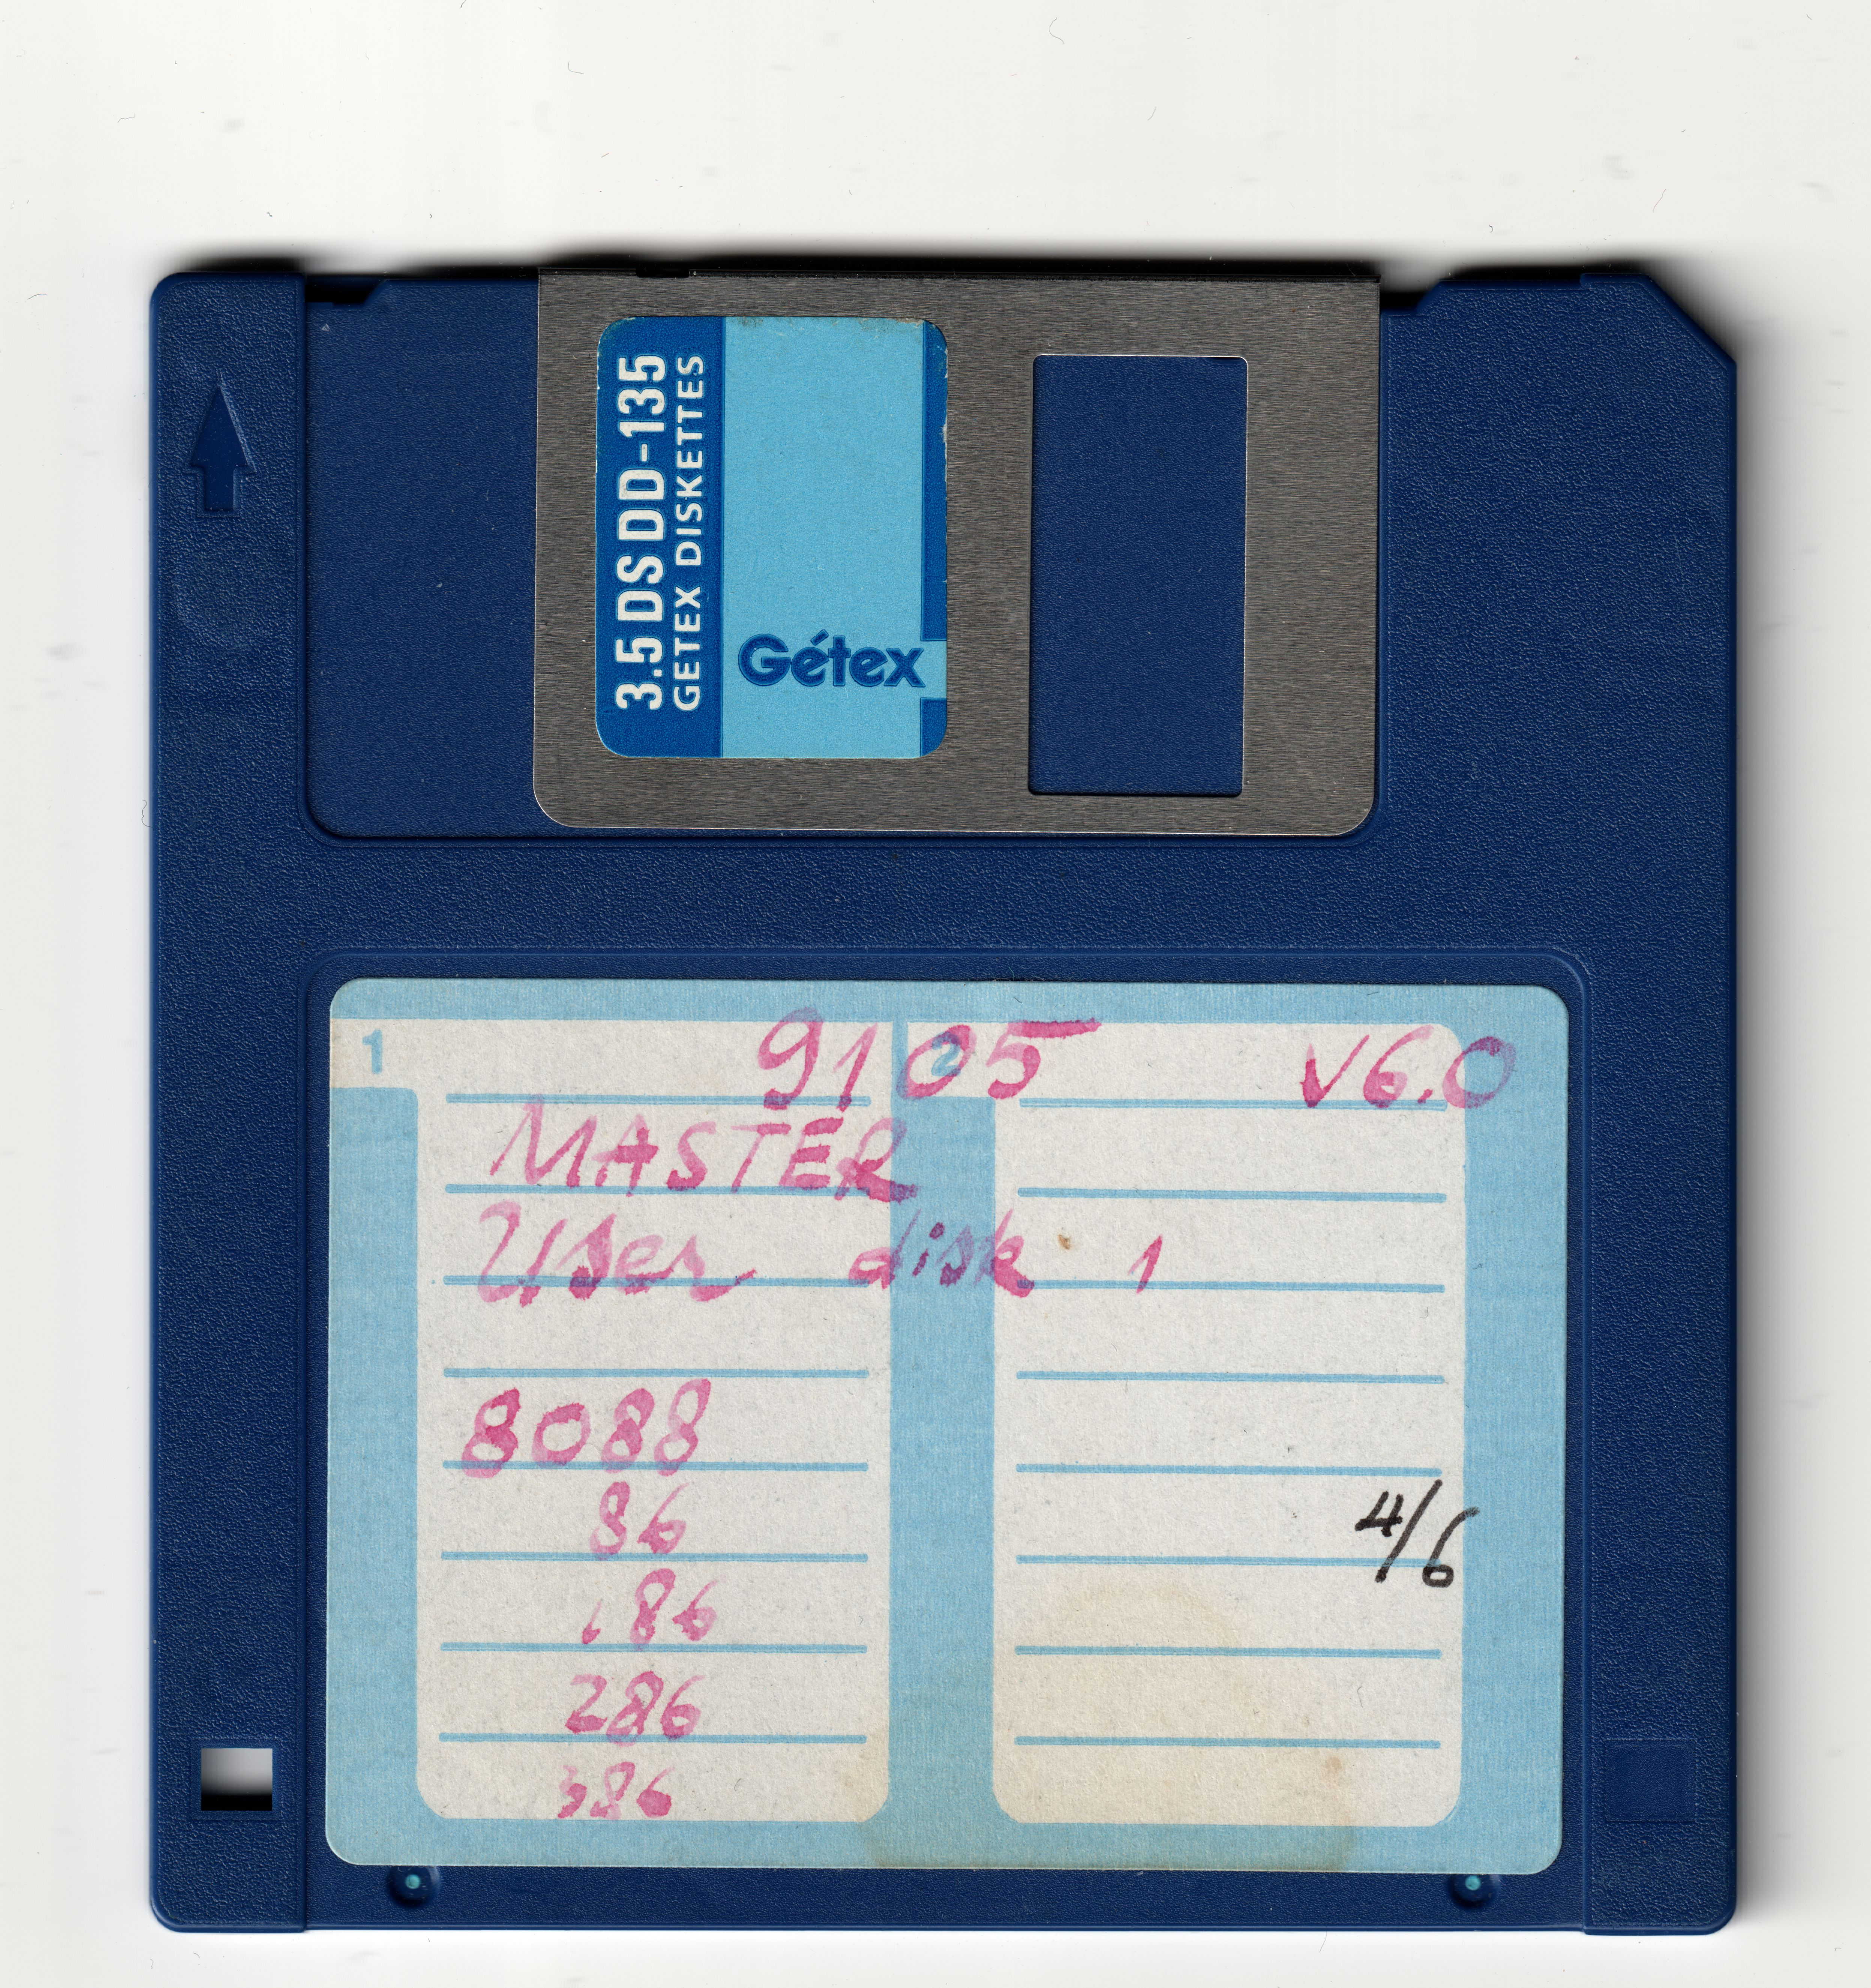 3.5 DS DD-135
GETEX DISKETTES
Gétex
1
2
9105 V6.0
MASTER
User disk 1
8088
86
186
286
386
4/6